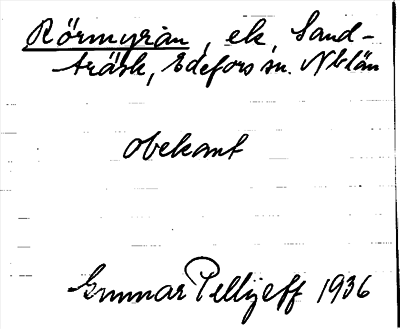 Rörmyrån, ek, Sand-
träsk, Edefors sn. Nb län
obekant
Gunnar Pellijeff 1936